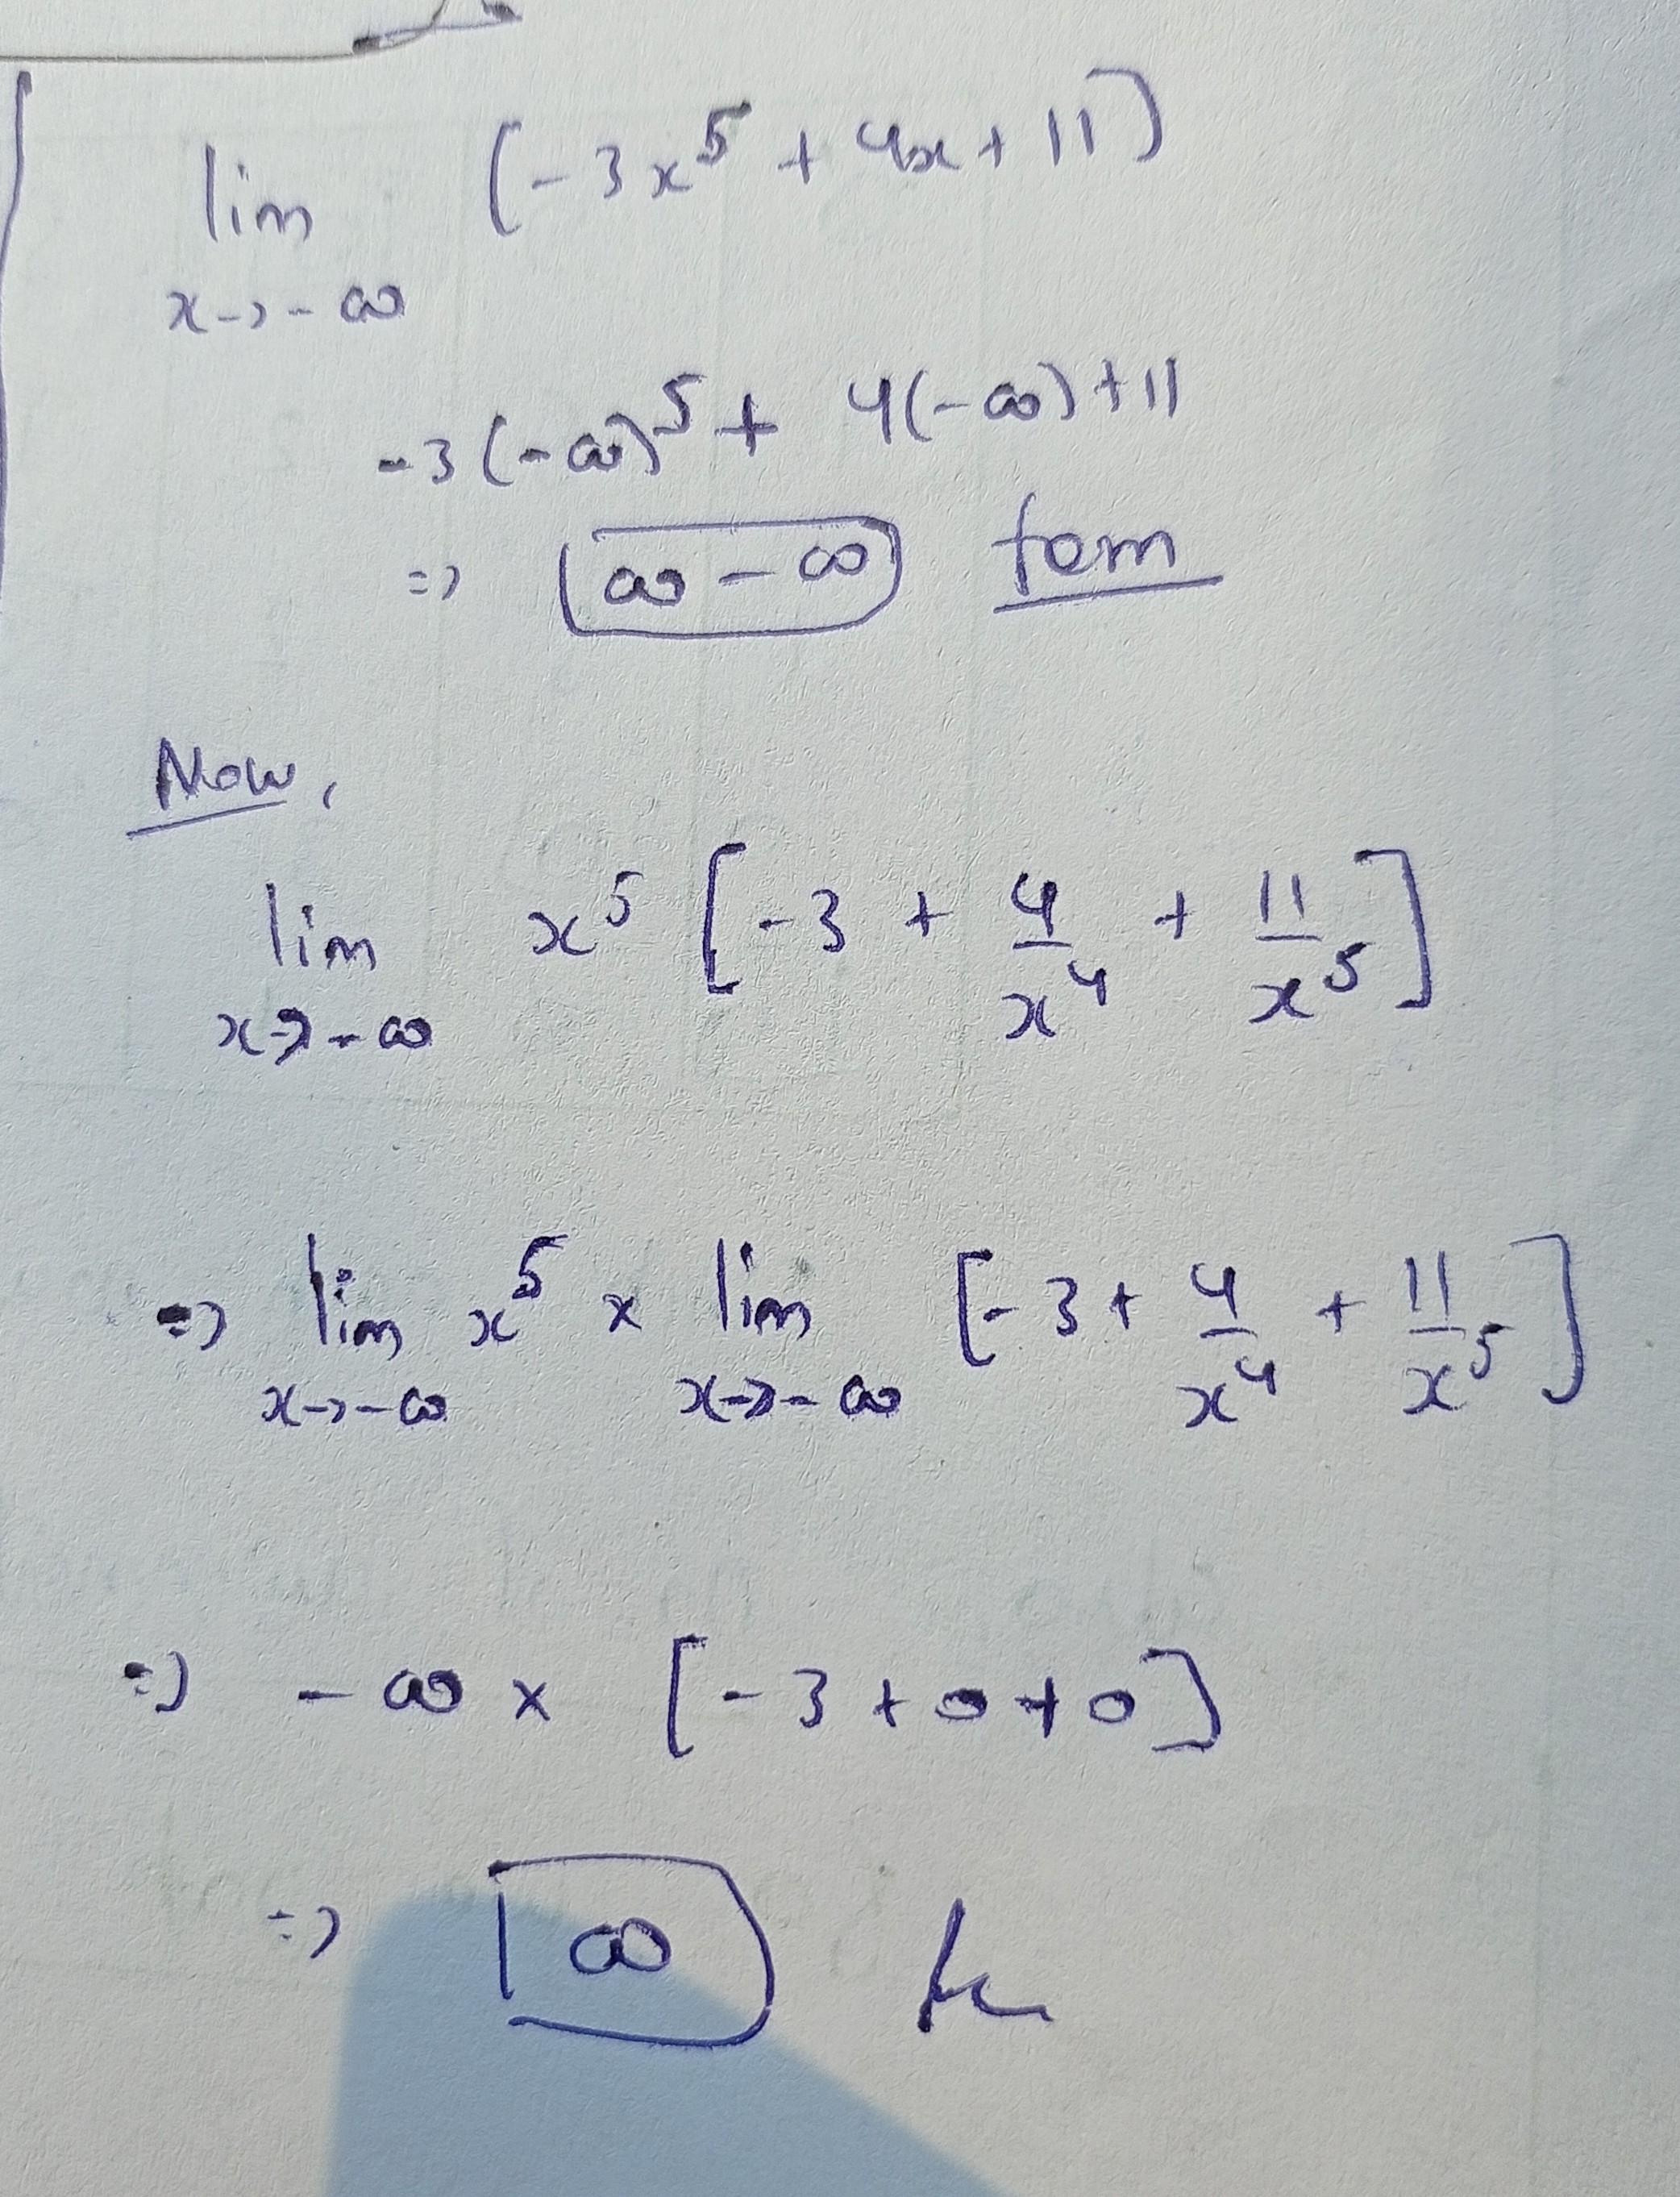 lim (-3x⁵ + 4x + 11)
x->-∞
-3(-∞)⁵ + 4(-∞) + 11
=> ∞ - ∞ form
Now,
lim x⁵ [-3 + 4/x⁴ + 11/x⁵]
x->-∞
=> lim x⁵ × lim [-3 + 4/x⁴ + 11/x⁵]
x->-∞ x->-∞
=> -∞ × [-3 + 0 + 0]
=> ∞